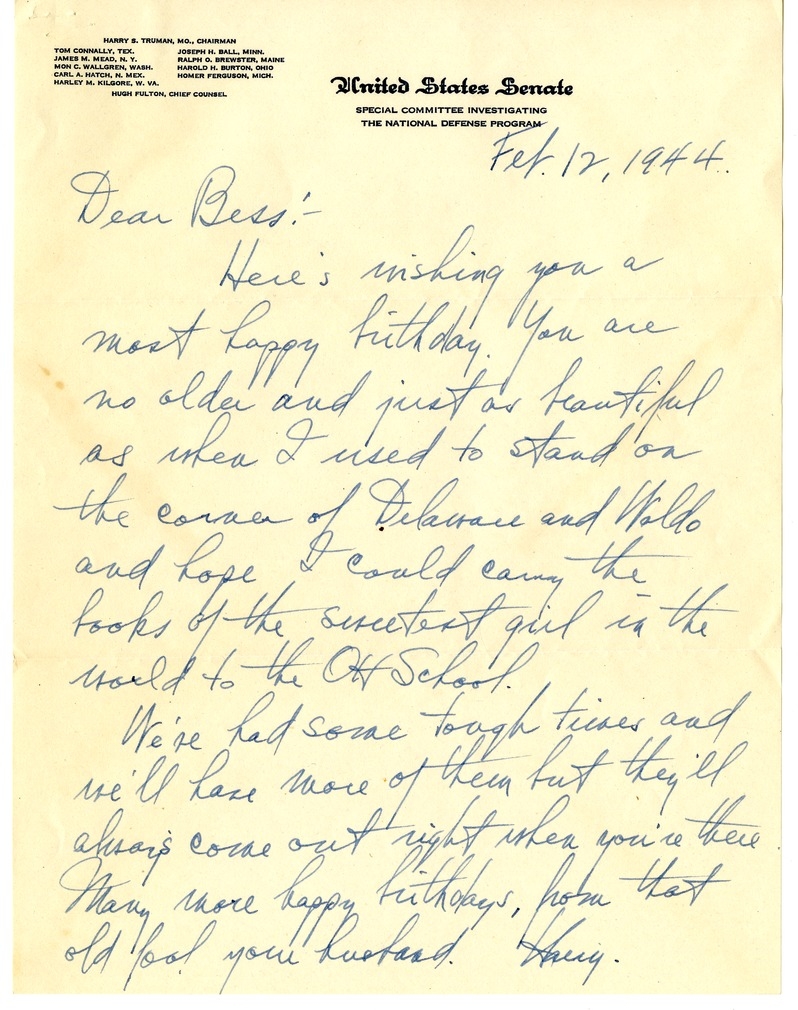 HARRY S. TRUMAN, MO., CHAIRMAN
TOM CONNALLY, TEX. JOSEPH H. BALL, MINN.
JAMES M. MEAD, N. Y. RALPH O. BREWSTER, MAINE
MON C. WALLGREN, WASH. HAROLD H. BURTON, OHIO
CARL A. HATCH, N. MEX. HOMER FERGUSON, MICH.
HARLEY M. KILGORE, W. VA.
HUGH FULTON, CHIEF COUNSEL
United States Senate
SPECIAL COMMITTEE INVESTIGATING
THE NATIONAL DEFENSE PROGRAM
Feb. 12, 1944.
Dear Bess:-
Here's wishing you a
most happy birthday. You are
no older and just as beautiful
as when I used to stand on
the corner of Delaware and Waldo
and hope I could carry the
books of the sweetest girl in the
world to the Ott School.
We've had some tough times and
we'll have more of them but they'll
always come out right when you're there
Many more happy birthdays, from that
old fool your husband. Harry.